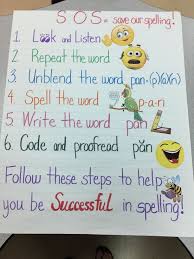 SOS - save our spelling!
1. Look and Listen
2. Repeat the word
3. Unblend the word pan-(p)(a)(n)
4. Spell the word p-a-n
5. Write the word pan
6. Code and proofread păn
Follow these steps to help
you be Successful in spelling!